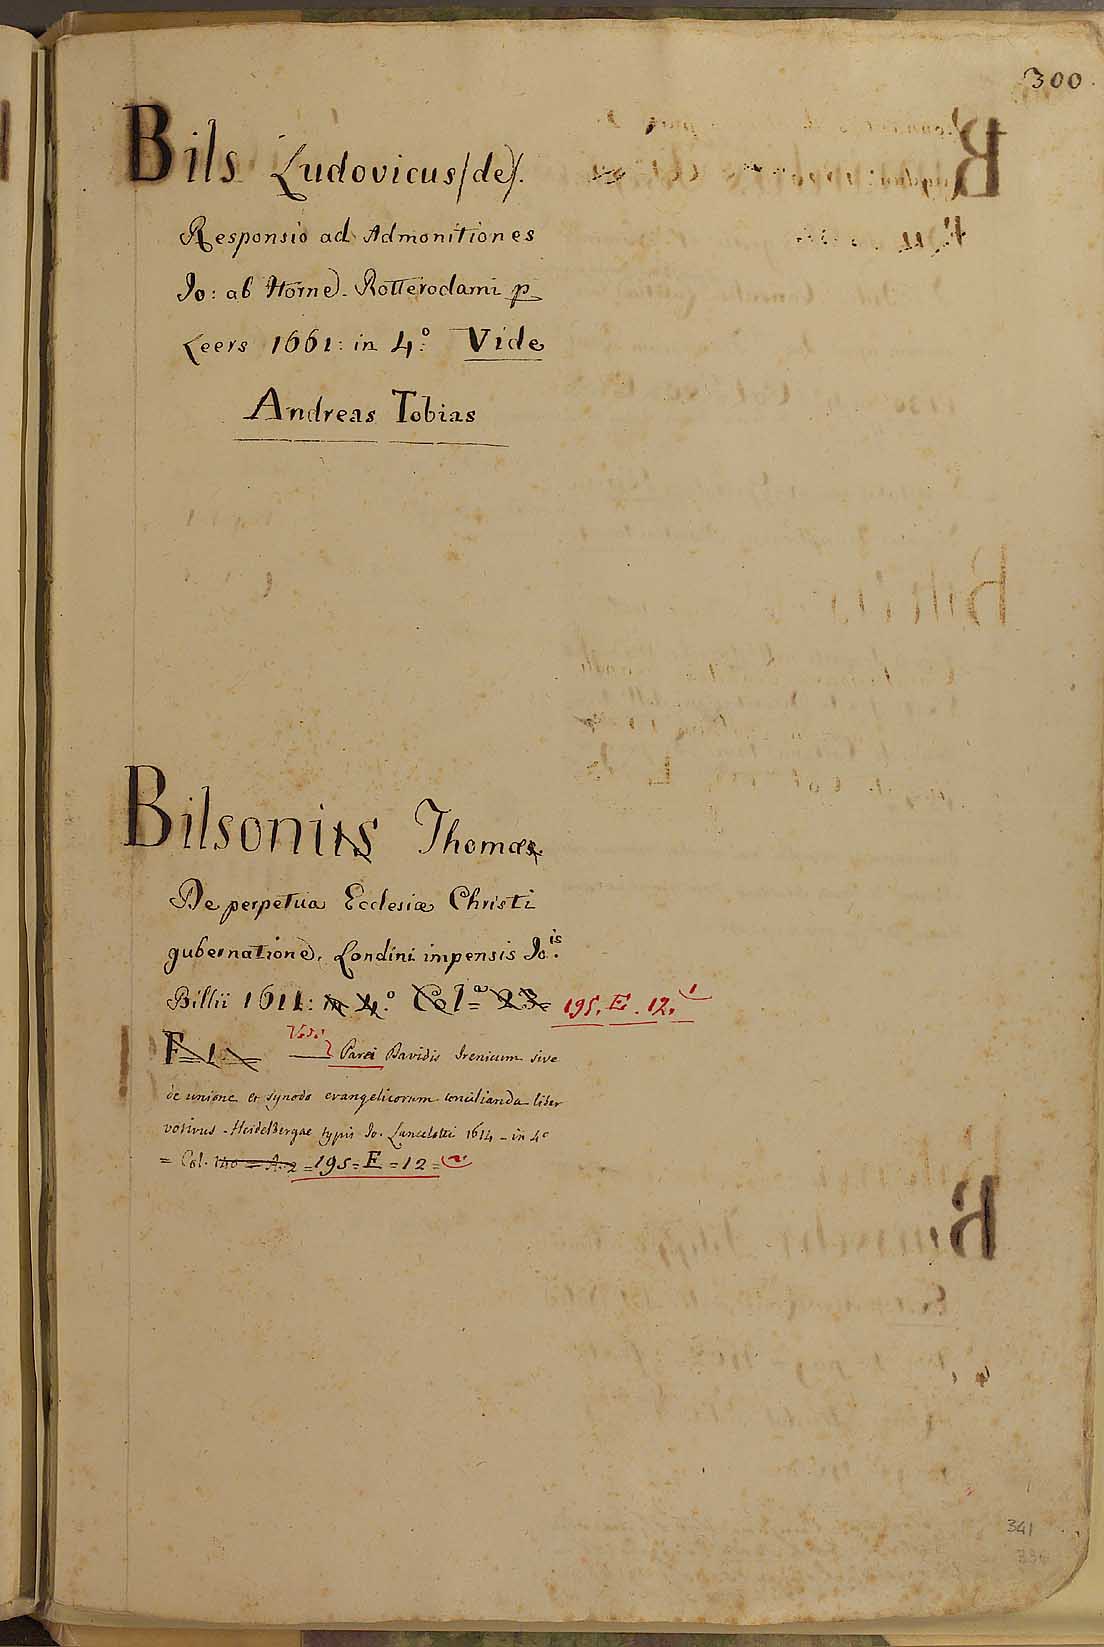 300.
Bils Ludovicus (de).
Responsio ad Admonitiones
Io: ab Horne. Rotterodami p
Leers 1661: in 4.º Vide
Andreas Tobias
Bilsonius Thomas.
De perpetua Ecclesiæ Christi
gubernatione, Londini impensis Io.is
Billii 1611: in 4.º Col.ª 23. 195. E. 12. 1
F. 1. Parei Davidis Irenicum sive
de unione et synodo evangelicorum concilianda liber
votivus - Heidelbergae typis Io. Lancelloti 1614 - in 4º
= Col. 140 = A. 2 = 195 = E = 12 = 2
341